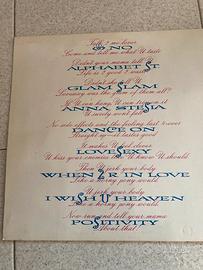 Talk 2 me lover
EYE NO
Come and tell me what U taste
Didn't your mama tell U
ALPHABET ST
Life is 2 good 2 waste
Didn't she tell U
GLAM SLAM
Lovesexy was the glam of them all?
If U can hang, U can trip on it
ANNA STESIA
U surely won't fall
No side effects and the feeling last 4-ever
DANCE ON
Straight up—it tastes good
It makes U feel clever
LOVESEXY
U kiss your enemies like U know U should
Then U jerk your body
WHEN 2 R IN LOVE
Like a horny pony would
U jerk your body
I WISH U HEAVEN
Like a horny pony would.
Now run and tell your mama
POSITIVITY
About that.